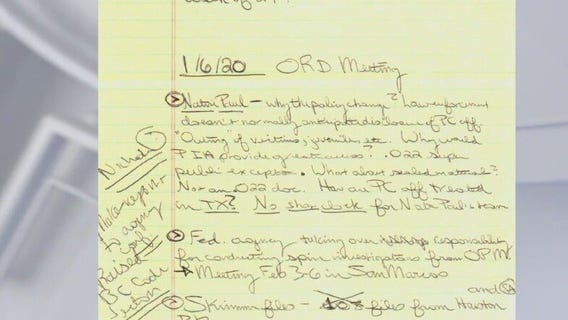 1/6/20 ORD Meeting
Nate Paul – why the policy change? Law enforcement
doesn't normally anticipate disclosure of PC aff
"Outing" of victims, juveniles, etc. Why would
PIA provide greater access? .022 super
public exception. What about sealed material?
Not an .022 doc. How are PC aff treated
in TX? No shoe lock for Nate Paul's team
Fed. agency taking over responsibility
for conducting spin investigations from OPM
Meeting Feb 3-6 in San Marcos
and
Skimmer files – files from Houston
Make
to agency
Revised
BC Code